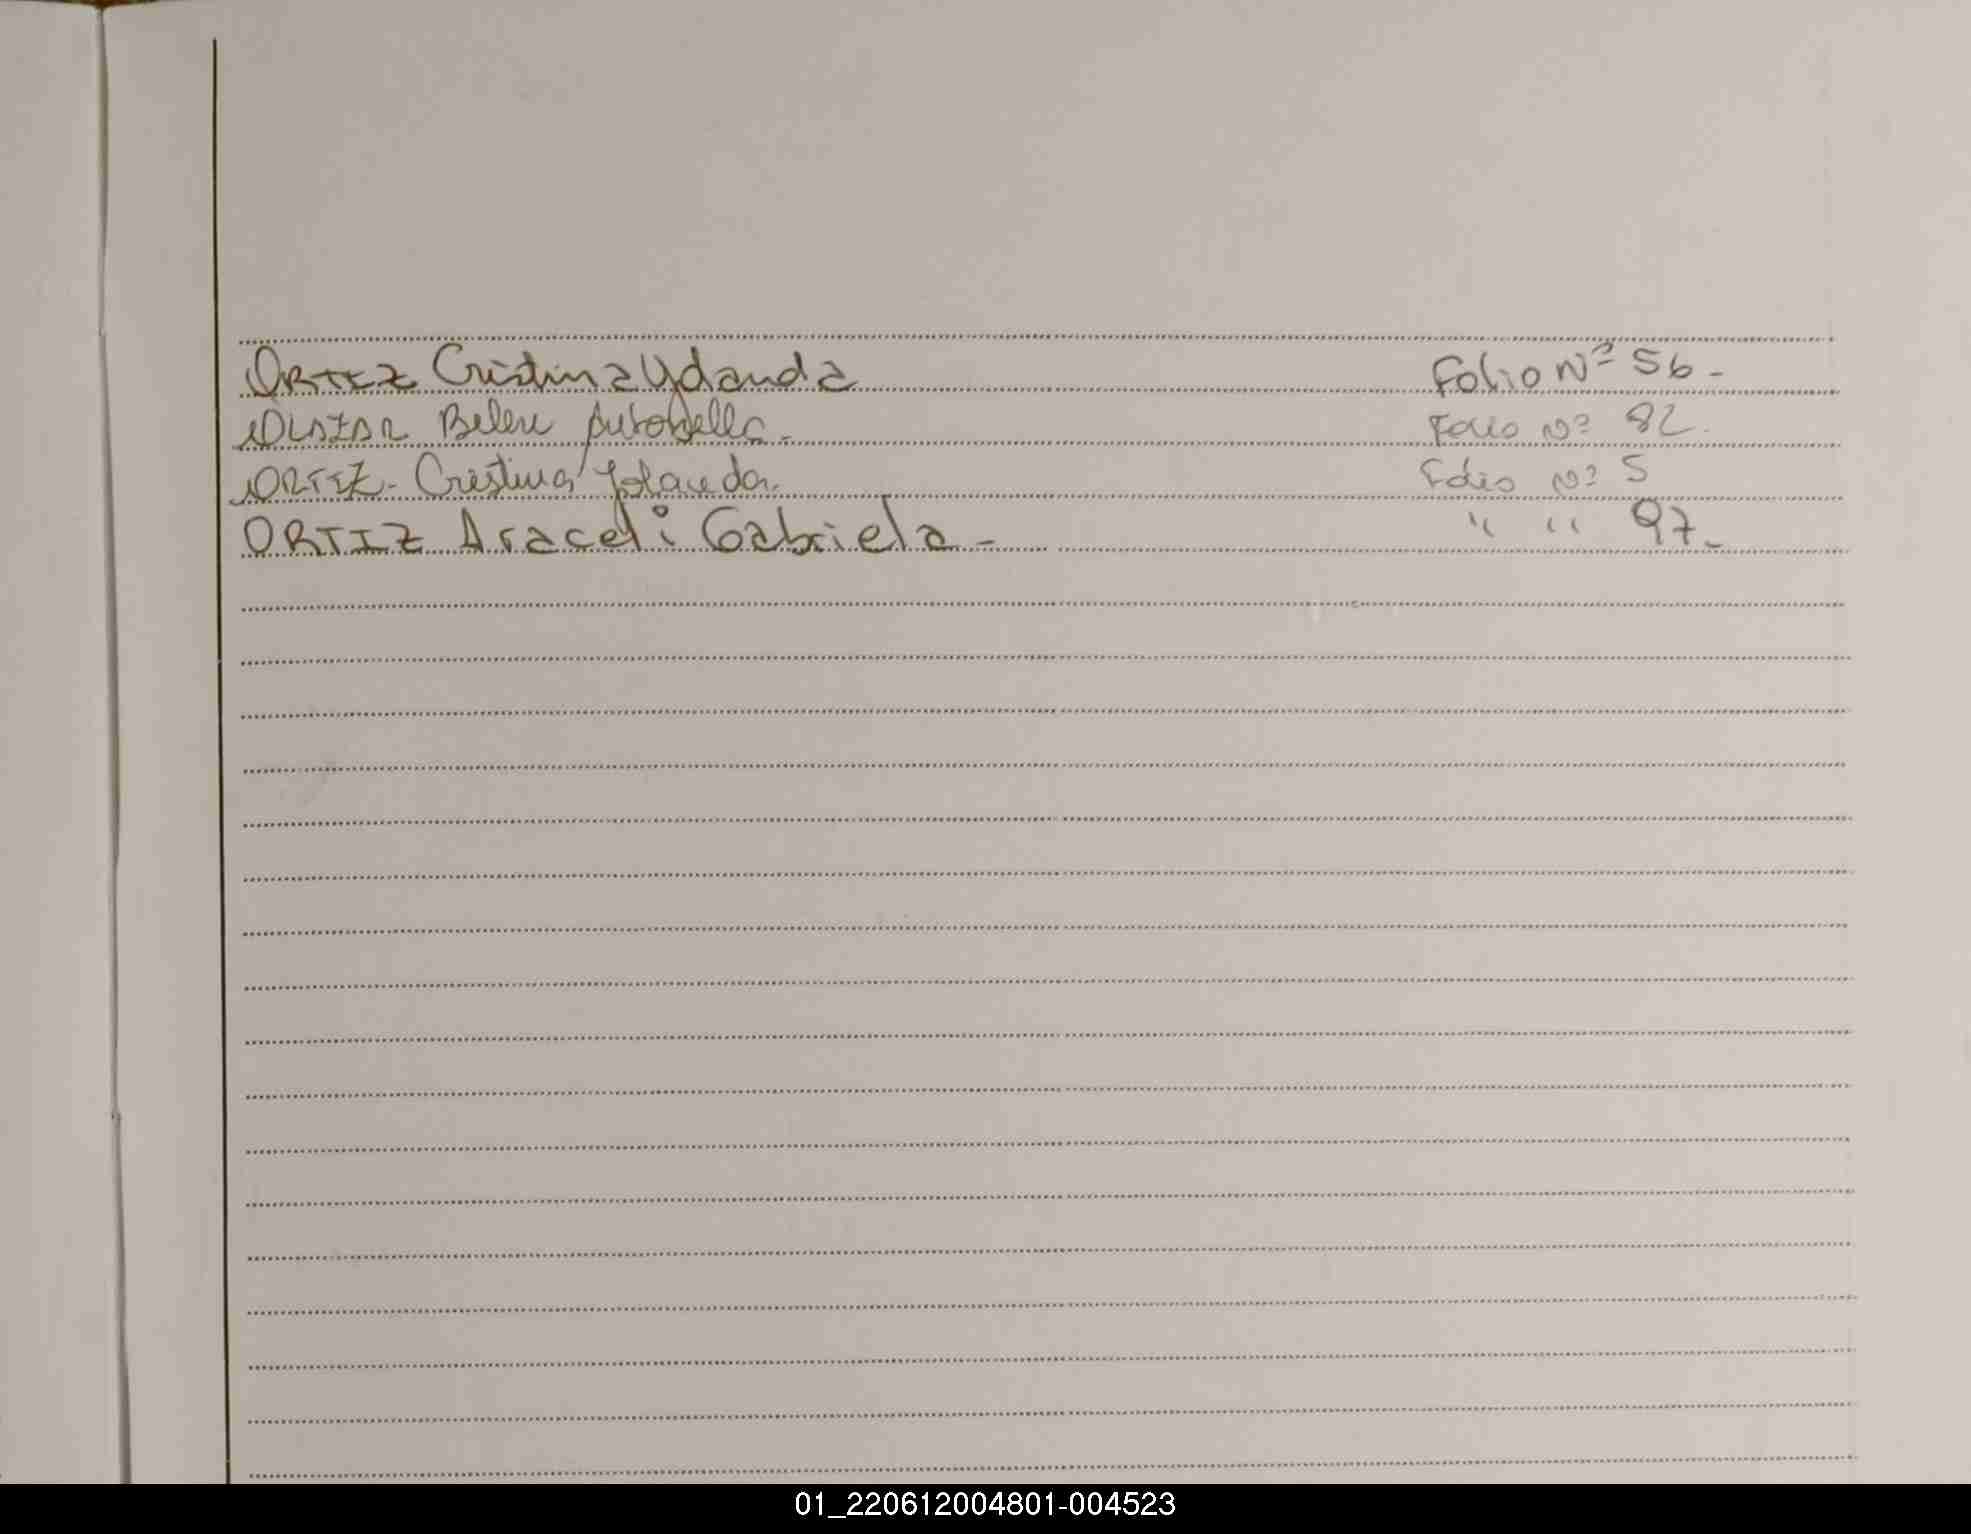 ORTIZ Cristina Yolanda Folio Nº 56-
OLAZAR Belen Antonella.- Folio Nº 82.
ORTIZ- Cristina Yolanda. Folio Nº 5
ORTIZ Araceli Gabriela- " " 97.-
01_220612004801-004523